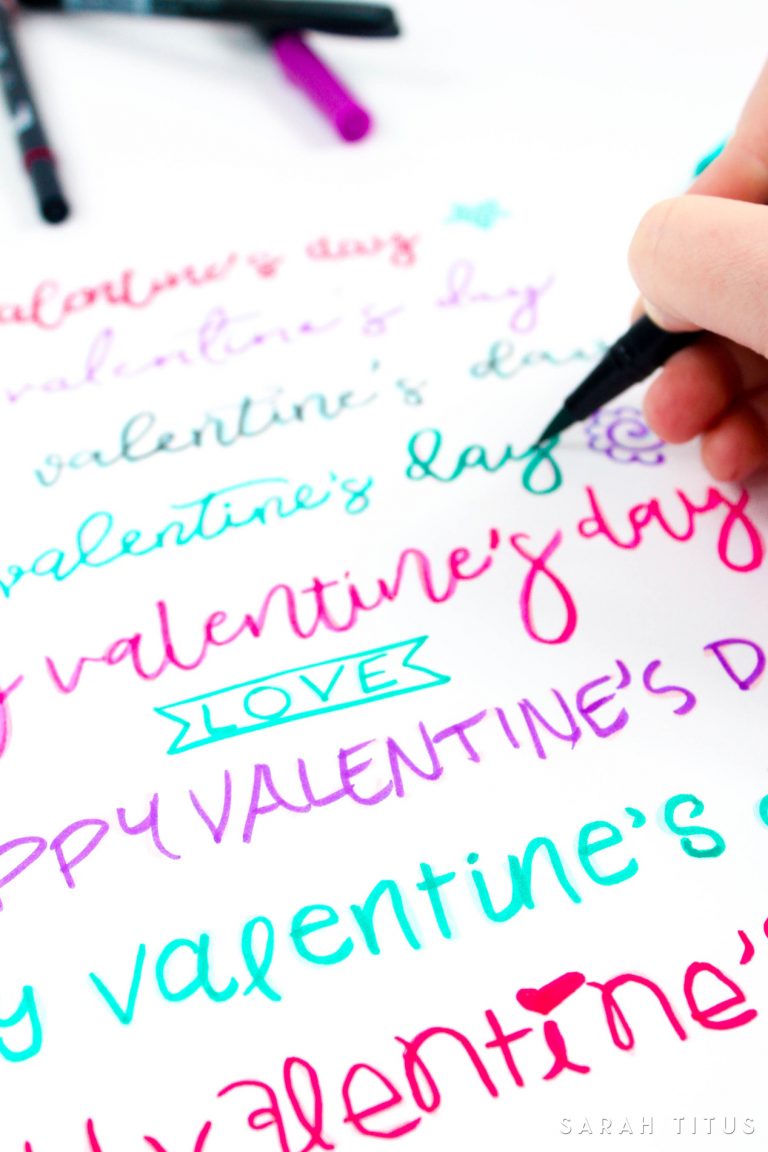 valentine's day
valentine's day
valentine's day
valentine's day
y valentine's day
LOVE
PPY VALENTINE'S D
y valentine's
y valentine's
SARAH TITUS